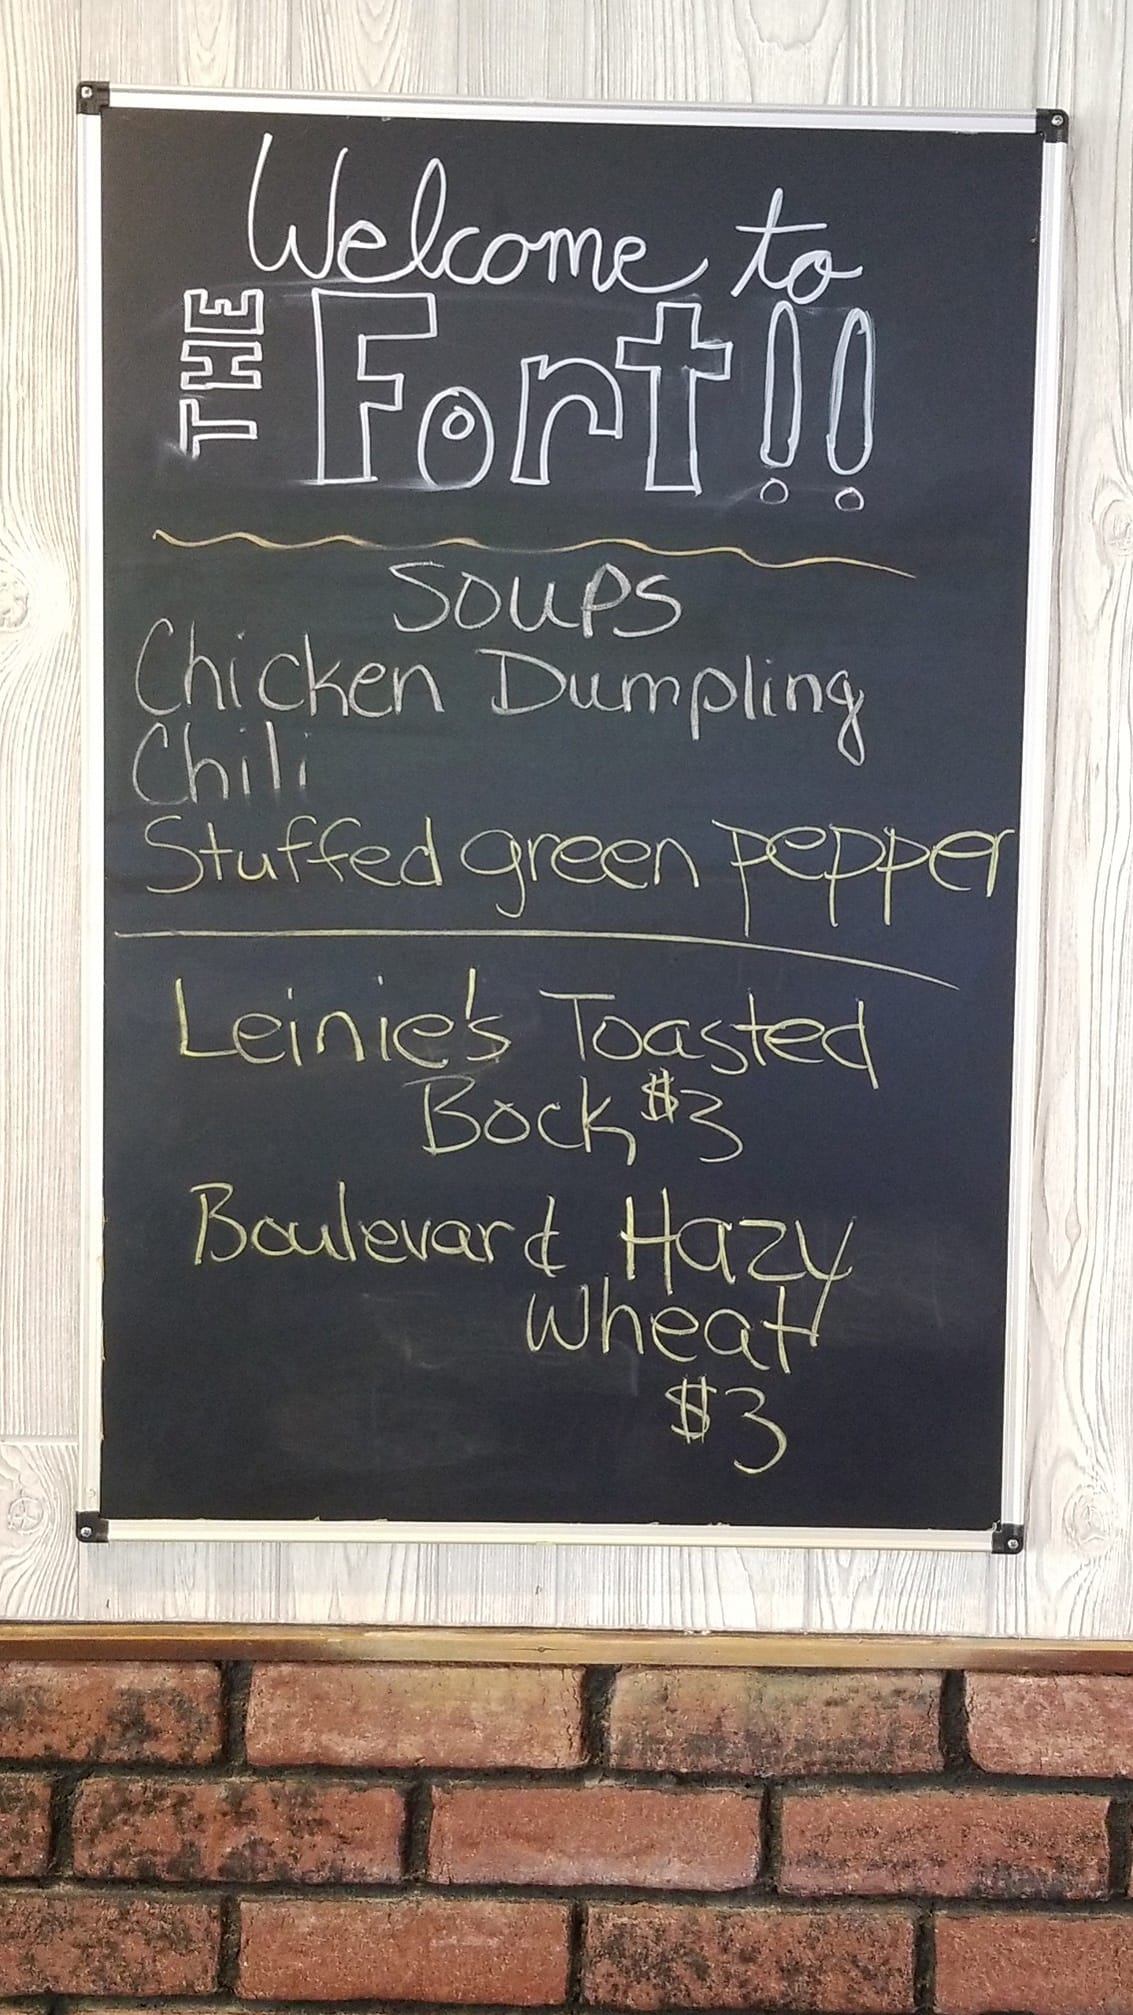 Welcome to
THE Fort!!
Soups
Chicken Dumpling
Chili
Stuffed green pepper
Leinie's Toasted
Bock $3
Boulevard Hazy
Wheat
$3